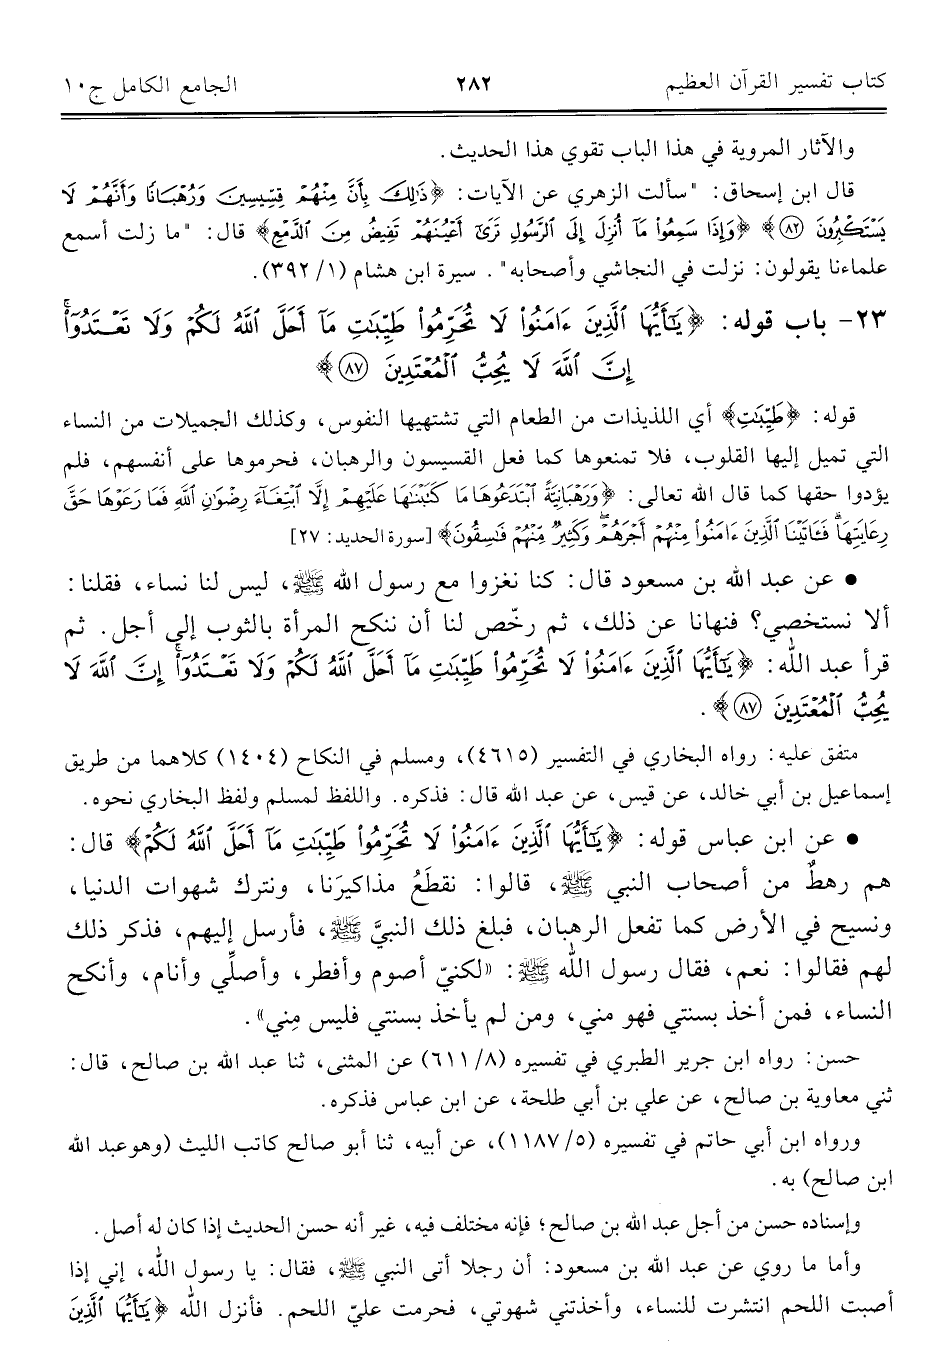 كتاب تفسير القرآن العظيم ٢٨٢ الجامع الكامل ج١٠
والآثار المروية في هذا الباب تقوي هذا الحديث.
قال ابن إسحاق: "سألت الزهري عن الآيات: ﴿ذَٰلِكَ بِأَنَّ مِنْهُمْ قِسِّيسِينَ وَرُهْبَانًا وَأَنَّهُمْ لَا
يَسْتَكْبِرُونَ ٨٢﴾ ﴿وَإِذَا سَمِعُوا۟ مَآ أُنزِلَ إِلَى ٱلرَّسُولِ تَرَىٰٓ أَعْيُنَهُمْ تَفِيضُ مِنَ ٱلدَّمْعِ﴾ قال: "ما زلت أسمع
علماءنا يقولون: نزلت في النجاشي وأصحابه". سيرة ابن هشام (١/ ٣٩٢).
٢٣- باب قوله: ﴿يَٰٓأَيُّهَا ٱلَّذِينَ ءَامَنُوا۟ لَا تُحَرِّمُوا۟ طَيِّبَٰتِ مَآ أَحَلَّ ٱللَّهُ لَكُمْ وَلَا تَعْتَدُوٓا۟ۚ
إِنَّ ٱللَّهَ لَا يُحِبُّ ٱلْمُعْتَدِينَ ٨٧﴾
قوله: ﴿طَيِّبَٰتِ﴾ أي اللذيذات من الطعام التي تشتهيها النفوس، وكذلك الجميلات من النساء
التي تميل إليها القلوب، فلا تمنعوها كما فعل القسيسون والرهبان، فحرموها على أنفسهم، فلم
يؤدوا حقها كما قال الله تعالى: ﴿وَرَهْبَانِيَّةً ٱبْتَدَعُوهَا مَا كَتَبْنَٰهَا عَلَيْهِمْ إِلَّا ٱبْتِغَآءَ رِضْوَٰنِ ٱللَّهِ فَمَا رَعَوْهَا حَقَّ
رِعَايَتِهَاۖ فَـَٔاتَيْنَا ٱلَّذِينَ ءَامَنُوا۟ مِنْهُمْ أَجْرَهُمْۖ وَكَثِيرٌ مِّنْهُمْ فَٰسِقُونَ﴾ [سورة الحديد: ٢٧]
• عن عبد الله بن مسعود قال: كنا نغزوا مع رسول الله ﷺ، ليس لنا نساء، فقلنا:
ألا نستخصي؟ فنهانا عن ذلك، ثم رخّص لنا أن ننكح المرأة بالثوب إلى أجل. ثم
قرأ عبد الله: ﴿يَٰٓأَيُّهَا ٱلَّذِينَ ءَامَنُوا۟ لَا تُحَرِّمُوا۟ طَيِّبَٰتِ مَآ أَحَلَّ ٱللَّهُ لَكُمْ وَلَا تَعْتَدُوٓا۟ۚ إِنَّ ٱللَّهَ لَا
يُحِبُّ ٱلْمُعْتَدِينَ ٨٧﴾.
متفق عليه: رواه البخاري في التفسير (٤٦١٥)، ومسلم في النكاح (١٤٠٤) كلاهما من طريق
إسماعيل بن أبي خالد، عن قيس، عن عبد الله قال: فذكره. واللفظ لمسلم ولفظ البخاري نحوه.
• عن ابن عباس قوله: ﴿يَٰٓأَيُّهَا ٱلَّذِينَ ءَامَنُوا۟ لَا تُحَرِّمُوا۟ طَيِّبَٰتِ مَآ أَحَلَّ ٱللَّهُ لَكُمْ﴾ قال:
هم رهطٌ من أصحاب النبي ﷺ، قالوا: نقطَعُ مذاكيرَنا، ونترك شهوات الدنيا،
ونسيح في الأرض كما تفعل الرهبان، فبلغ ذلك النبيَّ ﷺ، فأرسل إليهم، فذكر ذلك
لهم فقالوا: نعم، فقال رسول الله ﷺ: «لكنيّ أصوم وأفطر، وأصلِّي وأنام، وأنكح
النساء، فمن أخذ بسنتي فهو مني، ومن لم يأخذ بسنتي فليس مِني».
حسن: رواه ابن جرير الطبري في تفسيره (٨/ ٦١١) عن المثنى، ثنا عبد الله بن صالح، قال:
ثني معاوية بن صالح، عن علي بن أبي طلحة، عن ابن عباس فذكره.
ورواه ابن أبي حاتم في تفسيره (٥/ ١١٨٧)، عن أبيه، ثنا أبو صالح كاتب الليث (وهو عبد الله
ابن صالح) به.
وإسناده حسن من أجل عبد الله بن صالح؛ فإنه مختلف فيه، غير أنه حسن الحديث إذا كان له أصل.
وأما ما روي عن عبد الله بن مسعود: أن رجلا أتى النبي ﷺ، فقال: يا رسول الله، إني إذا
أصبت اللحم انتشرت للنساء، وأخذتني شهوتي، فحرمت عليّ اللحم. فأنزل الله ﴿يَٰٓأَيُّهَا ٱلَّذِينَ